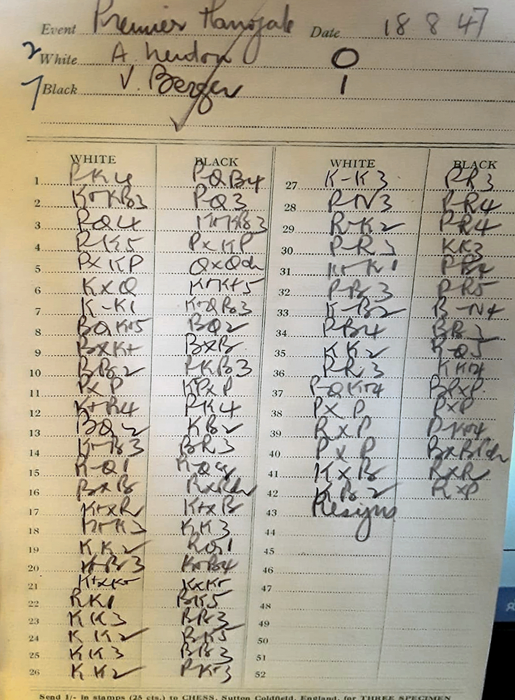 Event Premier Harrogate Date 18 8 47
2 White A. 0
7 Black V. Berger 1
WHITE BLACK
1 PK4 PQB4
2 KtKB3 PQ3
3 PQ4 KtKB3
4 PK5 PxKP
5 PxKP QxQch
6 KxQ KtKt5
7 K-K1 KtQB3
8 BQKt5 BQ2
9 BxKt BxB
10 PKB3
11 PxP KPxP
12 KtR4 PK4
13 BQ2 KB2
14 BR3
15 K-Q1
16 BxB RxRch
17 KtxR KtxB
18 KK3
19 KK2 RQ1
20 KtB4
21 KtxKt KxKt
22 RK1 BK5
23 KK3 BB3
24 KK2 BK5
25 KK3 BB3
26 KK2 PKt3
WHITE BLACK
27 K-K3 PR3
28 P-N3 P-R4
29 R-K2 PR4
30 P-R3 KK3
31 Kt-K1
32 PB3 PR5
33 K-B2 B-N4
34 PB4 BB3
35 KK2 R-Q5
36 PR3
37 P-QKt4
38 PxP PxP
39 RxP P-Kt4
40 PxP BxBPch
41 KxB RxR
42 KB2 KxP
43 Resigns
44
45
46
47
48
49
50
51
52
Send 1/- in stamps (25 cts.) to CHESS, Sutton Coldfield, England, for THREE SPECIMEN